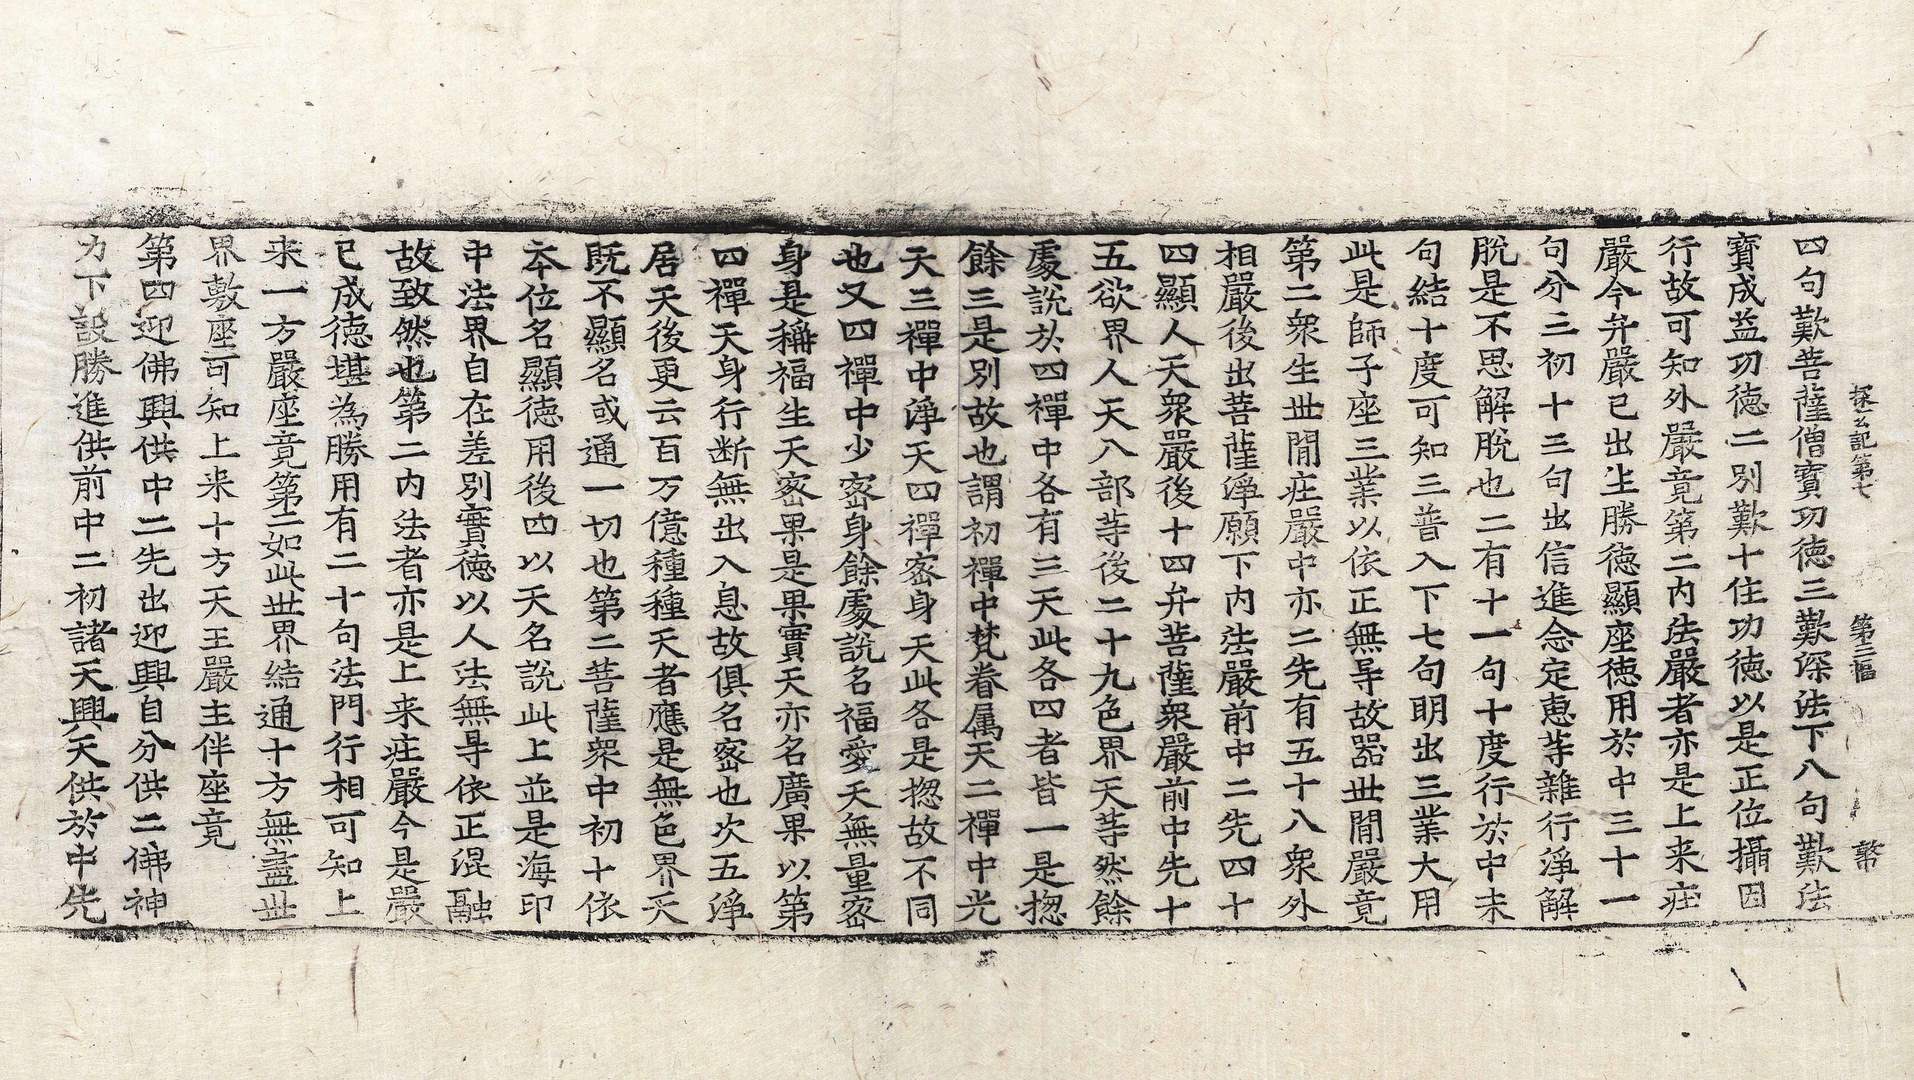 探玄記第七　第三幅　𡖖
四句歎菩薩僧寶功德三歎深法下八句歎法
寶成益功德二別歎十住功德以是正位攝因
行故可知外嚴竟第二內法嚴者亦是上来莊
嚴今弁嚴已出生勝德顯座德用於中三十一
句分三初十三句出信進念定恵䓁雜行淨解
脫是不思解脫也二有十一句十度行於中未
句結十度可知三普入下七句明出三業大用
此是師子座三業以依正無㝵故器世間嚴竟
第二衆生世間莊嚴中亦二先有五十八衆外
相嚴後出菩薩淨願下內法嚴前中二先四十
四顯人天衆嚴後十四弁菩薩衆嚴前中先十
五欲界人天八部䓁後二十九色界天䓁然餘
處說於四禪中各有三天此各四者皆一是揔
餘三是別故也謂初禪中梵眷属天二禪中光
天三禪中淨天四禪宻身天此各是揔故不同
也又四禪中少宻身餘處說名福愛天無量宻
身是稱福生天宻果是果實天亦名廣果以第
四禪天身行断無出入息故俱名宻也次五淨
居天後更云百万億種種天者應是無色界天
既不顯名或通一切也第二菩薩衆中初十依
本位名顯德用後四以天名說此上並是海印
中法界自在差別實德以人法無㝵依正混融
故致然也第二內法者亦是上来莊嚴今是嚴
已成德堪為勝用有二十句法門行相可知上
来一方嚴座竟第二如此世界結通十方無盡世
界敷座可知上来十方天王嚴主伴座竟
第四迎佛興供中二先出迎興自分供二佛神
力下設勝進供前中二初諸天興天供於中先